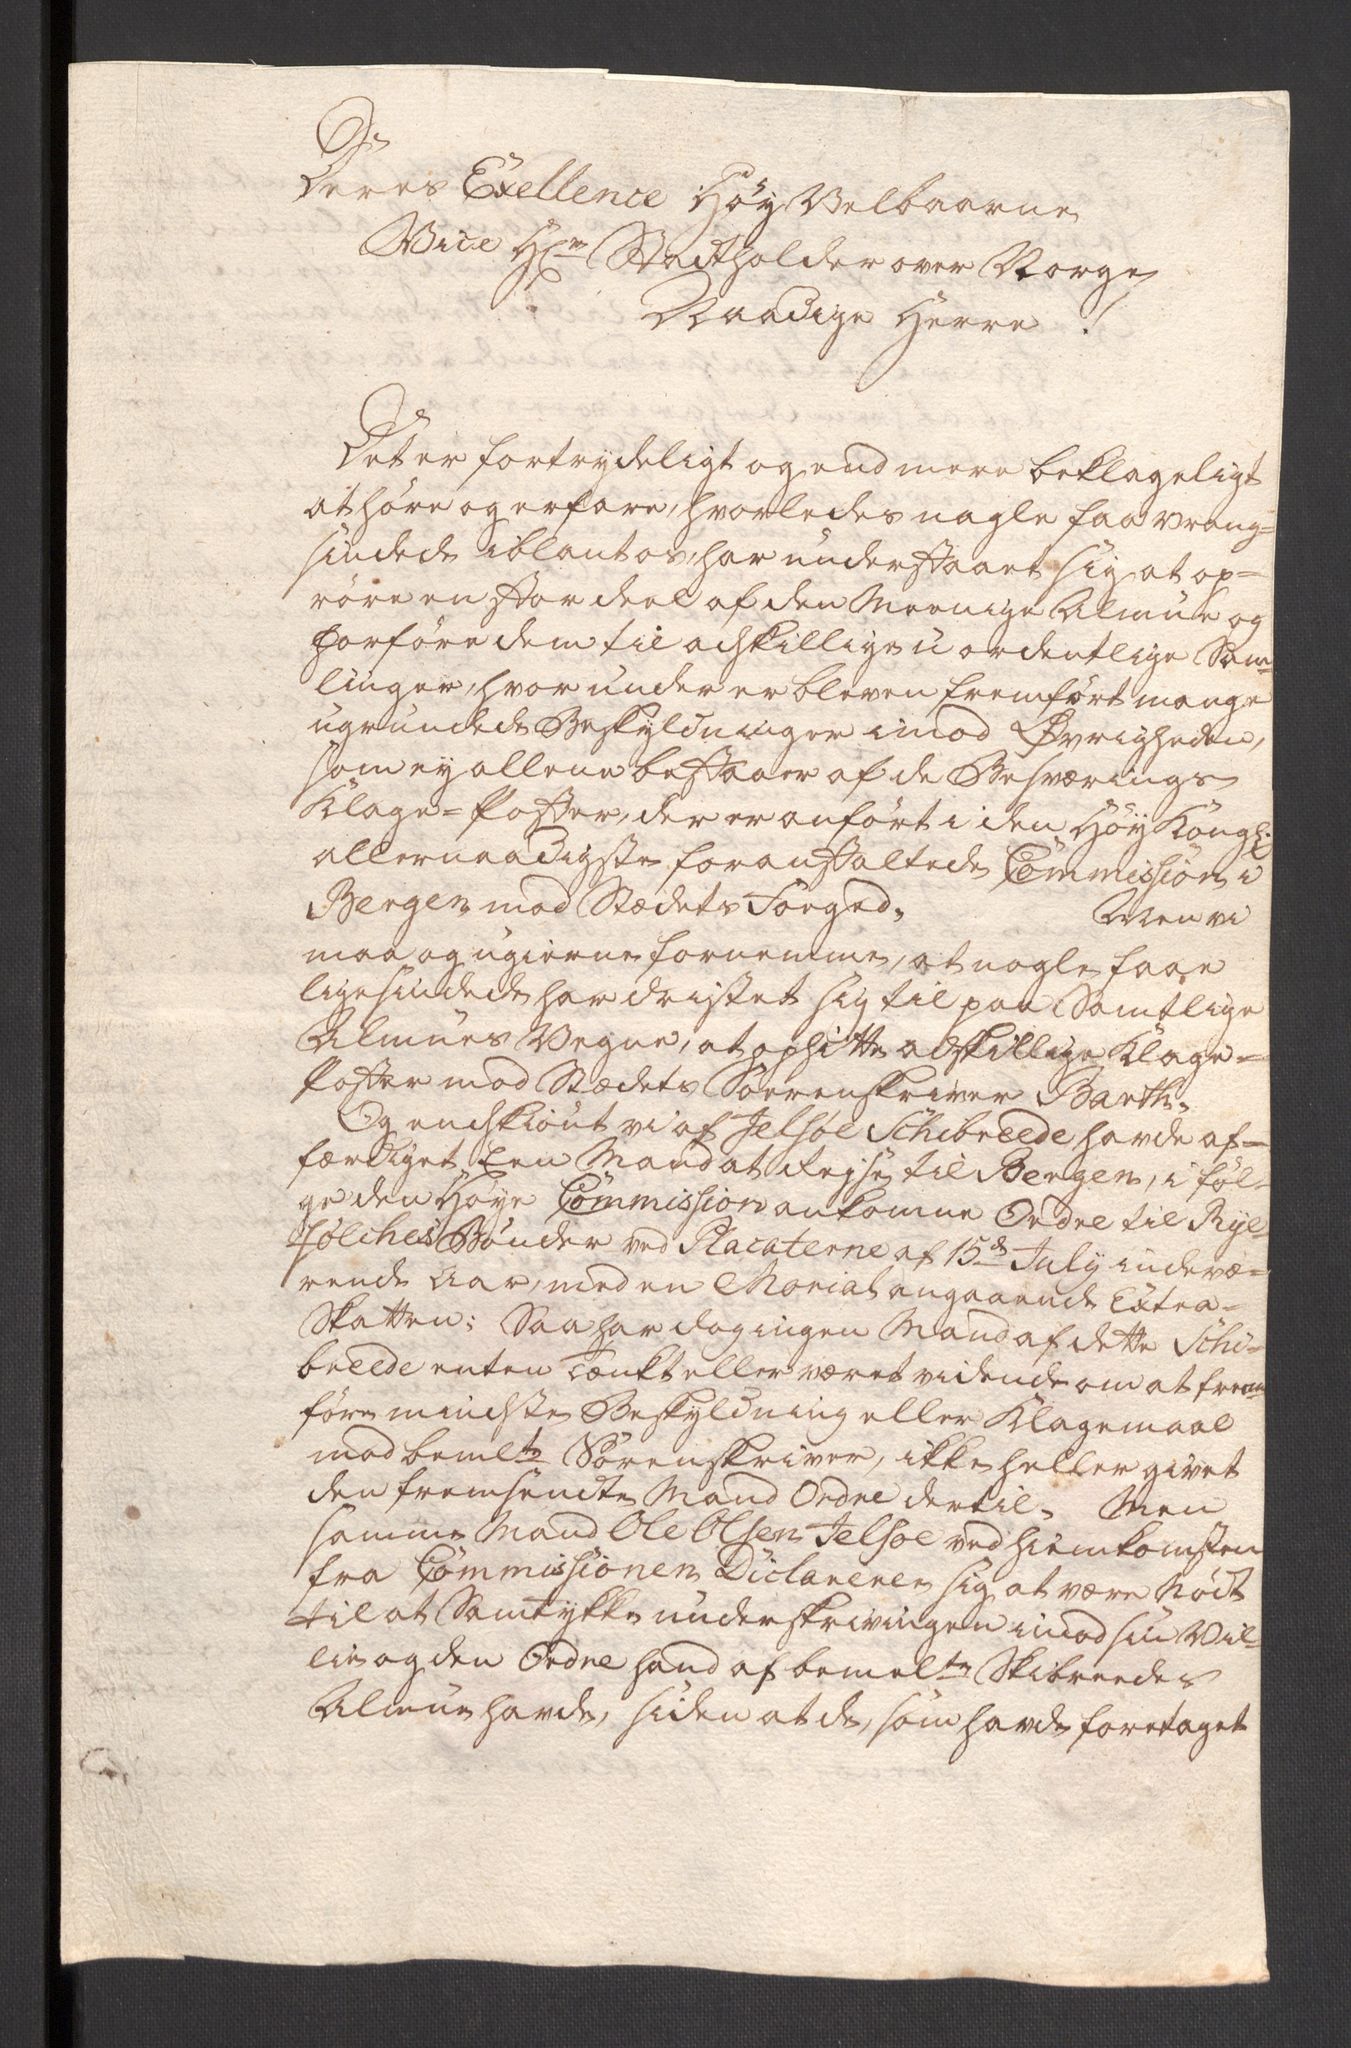 Deres Exellence Höy Velbaarne
Vice Hr Stadtholder over Norge
Naadige Herre!
Det er fortrydeligt og end mere beklageligt
at höre og erfare, hvorledes nogle faa vrang=
sindede iblant os, har understaaet sig, at op=
röre en stor deel af den Meenige Almue og
forföre dem til adskillige uordentlige Sam=
linger, hvor under er bleven fremfört mange
ugrundede Beskyldninger imod Øvrigheden,
som ey allene bestaaer af de Besværings
Klage=Poster, der er anfört i den Höy Kongl:
allernaadigste foranstaltede Commission i
Bergen mod Stædets Foged. Men vi
maa og ugierne fornemme, at nogle faae
ligesindede har dristet sig til paa Samtlige
Almues Vegne, at ophitte adskillige Klage=
Poster mod Stædets Sorenskriver Barth.
Og endskiönt vi af Jelsøe Schibreede havde af=
færdiget Een Mand at Rejse til Bergen, i föl=
ge den Höye Commission ankomne Ordre til Rye
fölckes Bönder ved Placaterne af 15de July indevæ=
rende Aar, med en Morial angaaende Extra=
Skatten: Saa har dog ingen Mand af dette Schi=
breede enten tænkt eller været vidende om at frem=
före mindste Beskyldning eller Klagemaal
mod bemelte Sörenskriver, ikke heller givet
den fremsendte Mand Ordre dertil. Men
samme Mand Ole Olsen Jelsoe ved hiemkomsten
fra Commissionen Diclarerer sig at være Nödt
til at Samtykke underskrivingen imod sin Vil=
lie og den Ordre hand af bemelte Skibreedes
Almue havde, siden at de, som havde foretaget